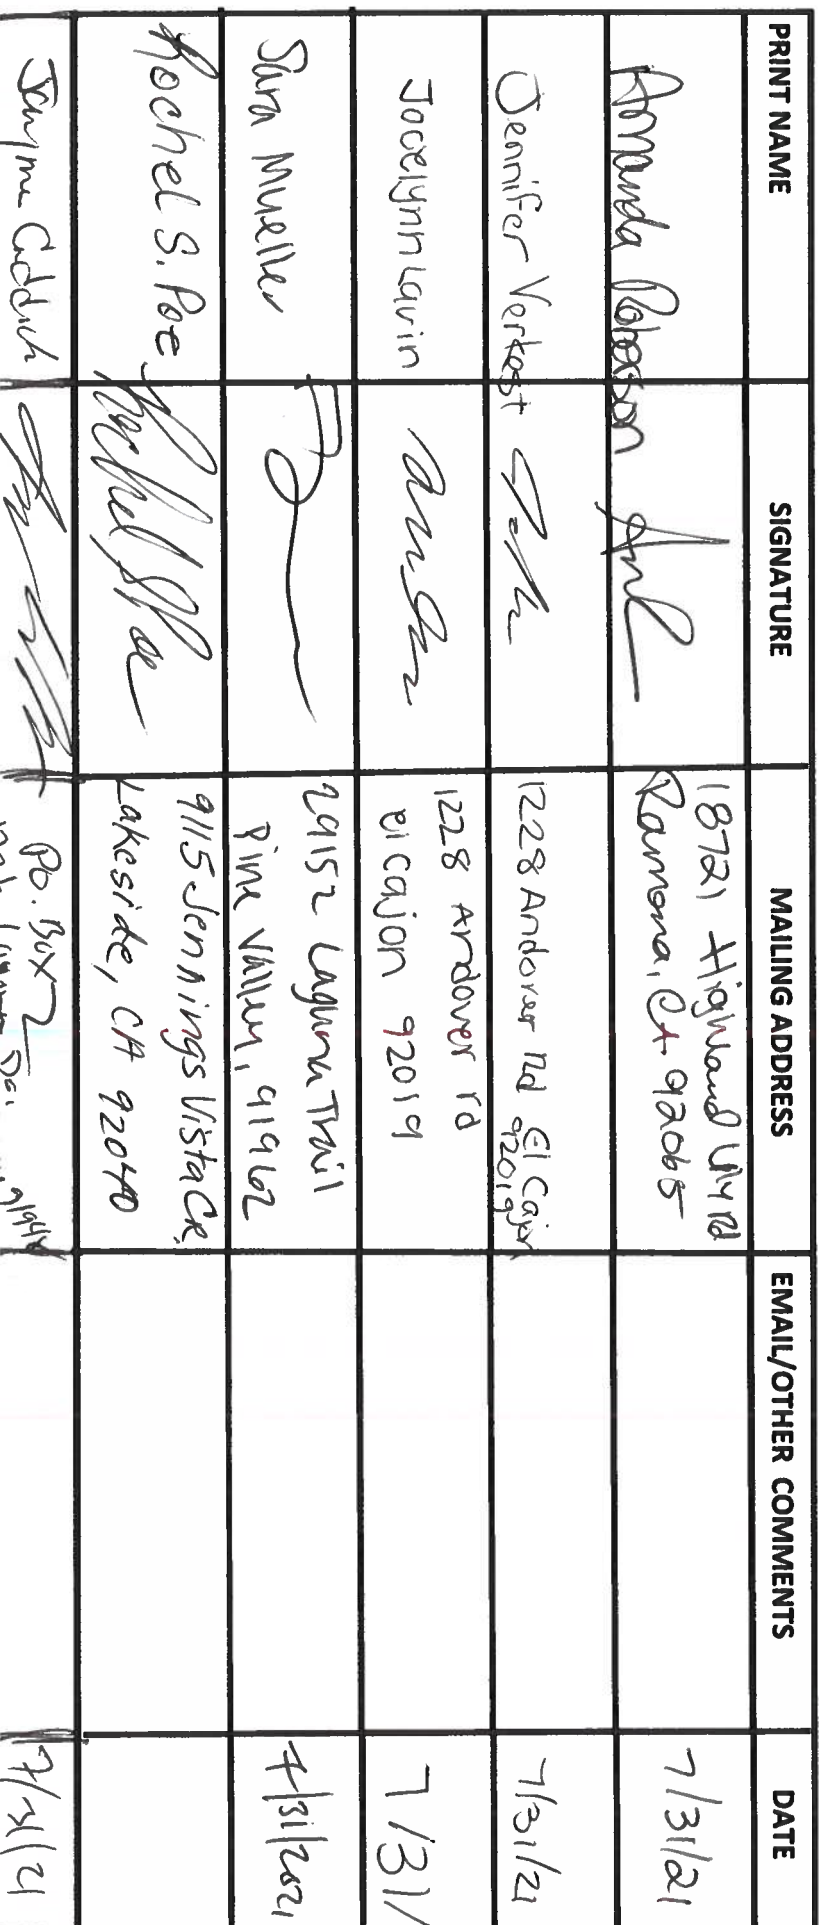 PRINT NAME SIGNATURE MAILING ADDRESS EMAIL/OTHER COMMENTS DATE
Amanda Roberson 18721 Highland Lily Rd 7/31/21
Ramona, CA 92065
Jennifer Verkest 1228 Andover rd El Cajon 7/31/21
92019
Jocelynn Lavin 1228 Andover rd 7/31/
el cajon 92019
Sara Mueller 29152 Laguna Trail 7/31/2021
Pine Valley, 91962
Rachel S. Poe 9115 Jennings Vista Cr.
Lakeside, CA 92040
P.O. Box 2 7/31/21